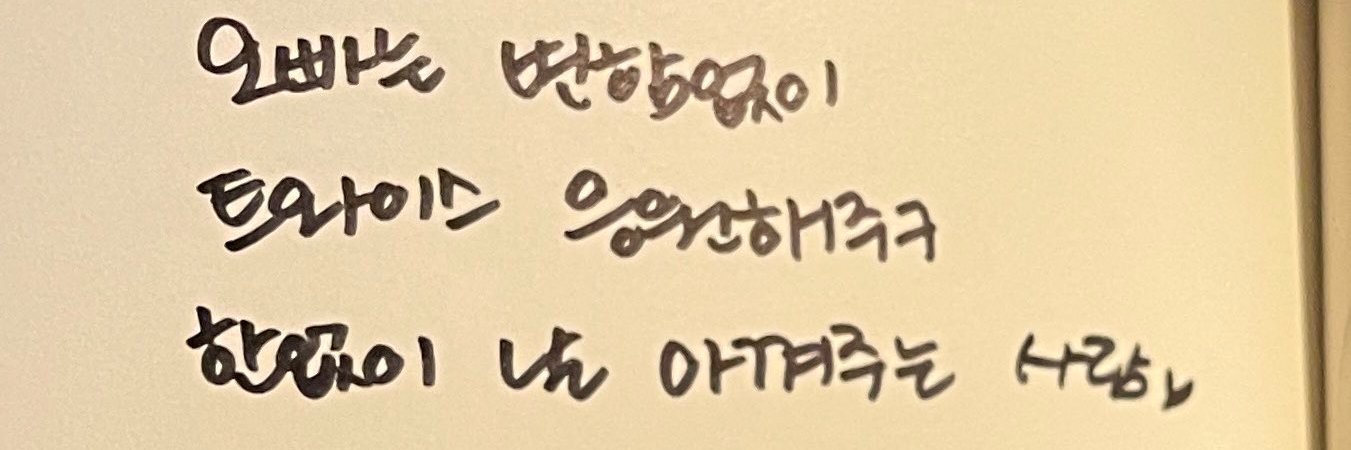 오빠는 변함없이
트와이스 응원해주구
한없이 날 아껴주는 사람